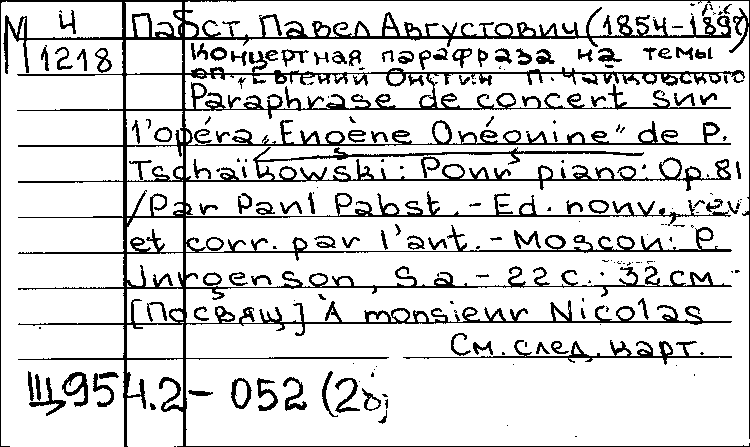 М 4 / 1218
Пабст, Павел Августович (1854–1897)
Концертная парафраза на темы
оп. „Евгений Онегин П. Чайковского
Paraphrase de concert sur
l'opéra „Eugène Onéguine" de P.
Tschaïkowski: Pour piano: Op. 81
/Par Paul Pabst. - Ed. nouv., rev.
et corr. par l'aut. - Moscou: P.
Jurgenson, S.a. - 22 с.; 32 см.
[Посвящ] À monsieur Nicolas
См. след. карт.
Щ954.2-052 (2